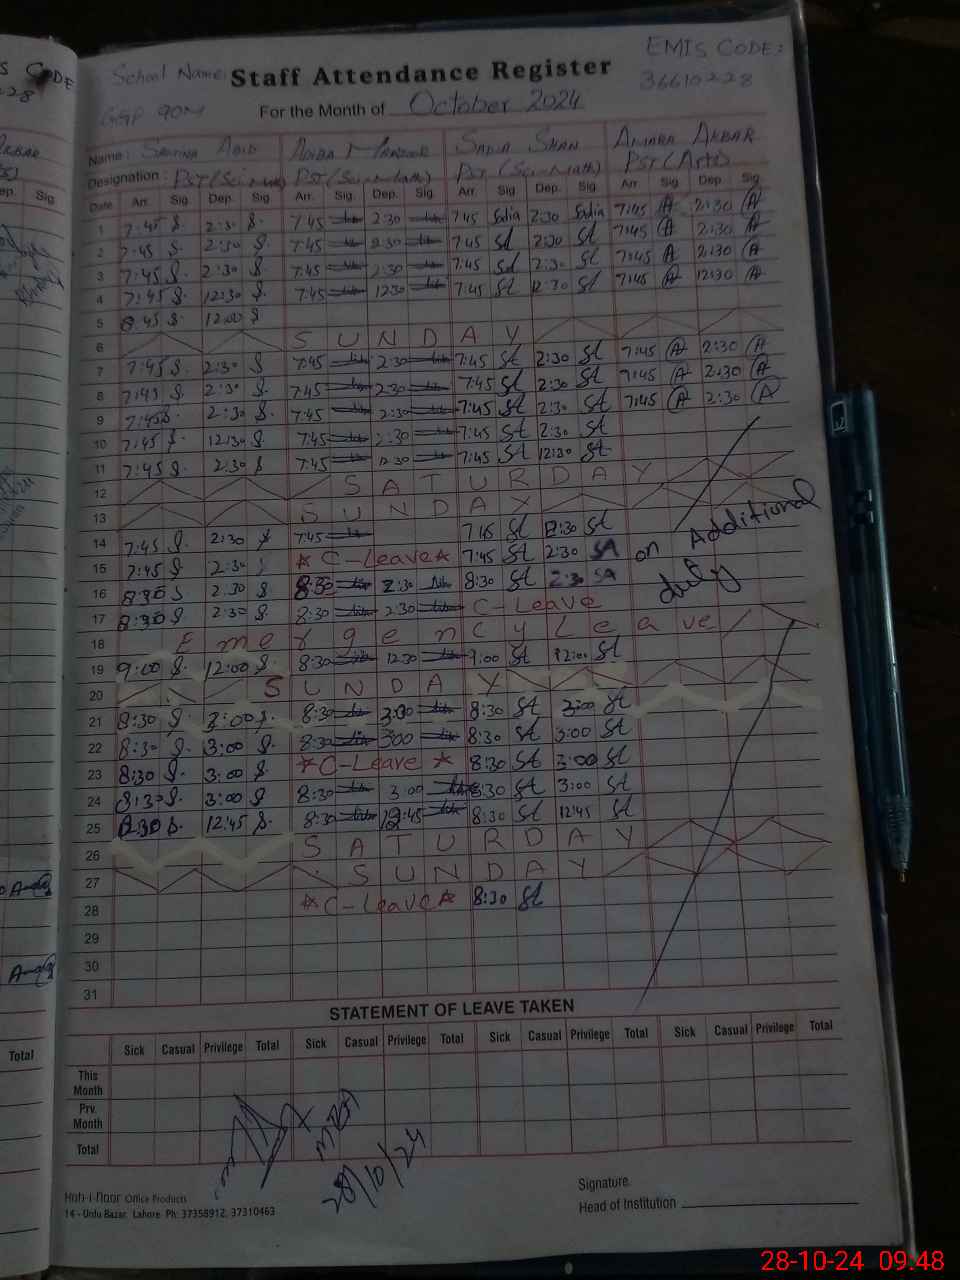 EMIS CODE:
School Name: Staff Attendance Register 36610228
For the Month of October 2024
Name: Sadia Shan Amara Akbar
Designation: PST (Sci-Math) PST (Sci-Math) PST (Arts)
Date Arr. Sig. Dep. Sig. Arr. Sig. Dep. Sig. Arr. Sig. Dep. Sig. Arr. Sig. Dep. Sig.
1 7:45 S. 2:30 S. 7:45 2:30 7:45 Sadia 2:30 Sadia 7:45 A 2:30 A
2 7:45 S. 2:30 S. 7:45 2:30 7:45 St 2:30 St 7:45 A 2:30 A
3 7:45 S. 2:30 S. 7:45 2:30 7:45 St 2:30 St 7:45 A 2:30 A
4 7:45 S. 12:30 S. 7:45 12:30 7:45 St 12:30 St 7:45 A 12:30 A
5 8:45 S. 12:00 S
6 SUNDAY
7 7:45 S. 2:30 S 7:45 2:30 7:45 St 2:30 St 7:45 A 2:30 A
8 7:45 S. 2:30 S 7:45 2:30 7:45 St 2:30 St 7:45 A 2:30 A
9 7:45 S. 2:30 S. 7:45 2:30 7:45 St 2:30 St 7:45 A 2:30 A
10 7:45 S. 12:30 S. 7:45 2:30 7:45 St 2:30 St
11 7:45 S. 2:30 S 7:45 12:30 7:45 St 12:30 St
12 SATURDAY
13 SUNDAY
14 7:45 S. 2:30 7:45 7:45 St 2:30 St
15 7:45 S 2:30 *C-Leave* 7:45 St 2:30 SA on Additional
16 8:30 S 2:30 S. 8:30 2:30 8:30 St 2:30 SA duty
17 8:30 S 2:30 S. 8:30 2:30 C-Leave
18 Emergency Leave
19 9:00 S. 12:00 S. 8:30 12:30 9:00 St 12:00 St
20 SUNDAY
21 8:30 S. 3:00 S. 8:30 3:00 8:30 St 3:00 St
22 8:30 S. 3:00 S. 8:30 3:00 8:30 St 3:00 St
23 8:30 S. 3:00 S. *C-Leave* 8:30 St 3:00 St
24 8:30 S. 3:00 S 8:30 3:00 8:30 St 3:00 St
25 8:30 S. 12:45 S. 8:30 12:45 8:30 St 12:45 St
26 SATURDAY
27 SUNDAY
28 *C-Leave* 8:30 St
29
30
31
STATEMENT OF LEAVE TAKEN
Sick Casual Privilege Total Sick Casual Privilege Total Sick Casual Privilege Total Sick Casual Privilege Total
This Month
Prv. Month
Total
28/10/24
Office Products
14 - Urdu Bazar, Lahore. Ph: 37358912, 37310463
Signature
Head of Institution
Sig.
Total
28-10-24 09:48